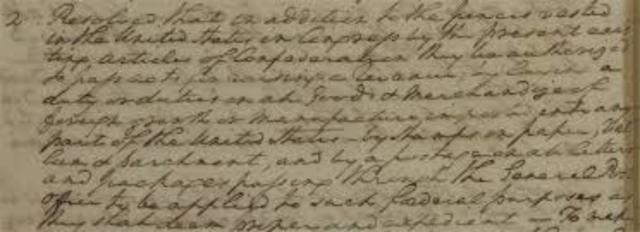 2 Resolved that in addition to the powers vested
in the United States in Congress by the present exis
ting articles of Confederation they be authorized
to pass acts for raising a Revenue, by levying a
duty or duties on all Goods & Merchandise of
foreign growth or manufacture imported into any
part of the United States - by Stamps on paper, Vel
lum & parchment, and by a postage on all letters
and packages passing through the General Pos
office, to be applied to such foederal purposes as
they shall deem proper and expedient — To make